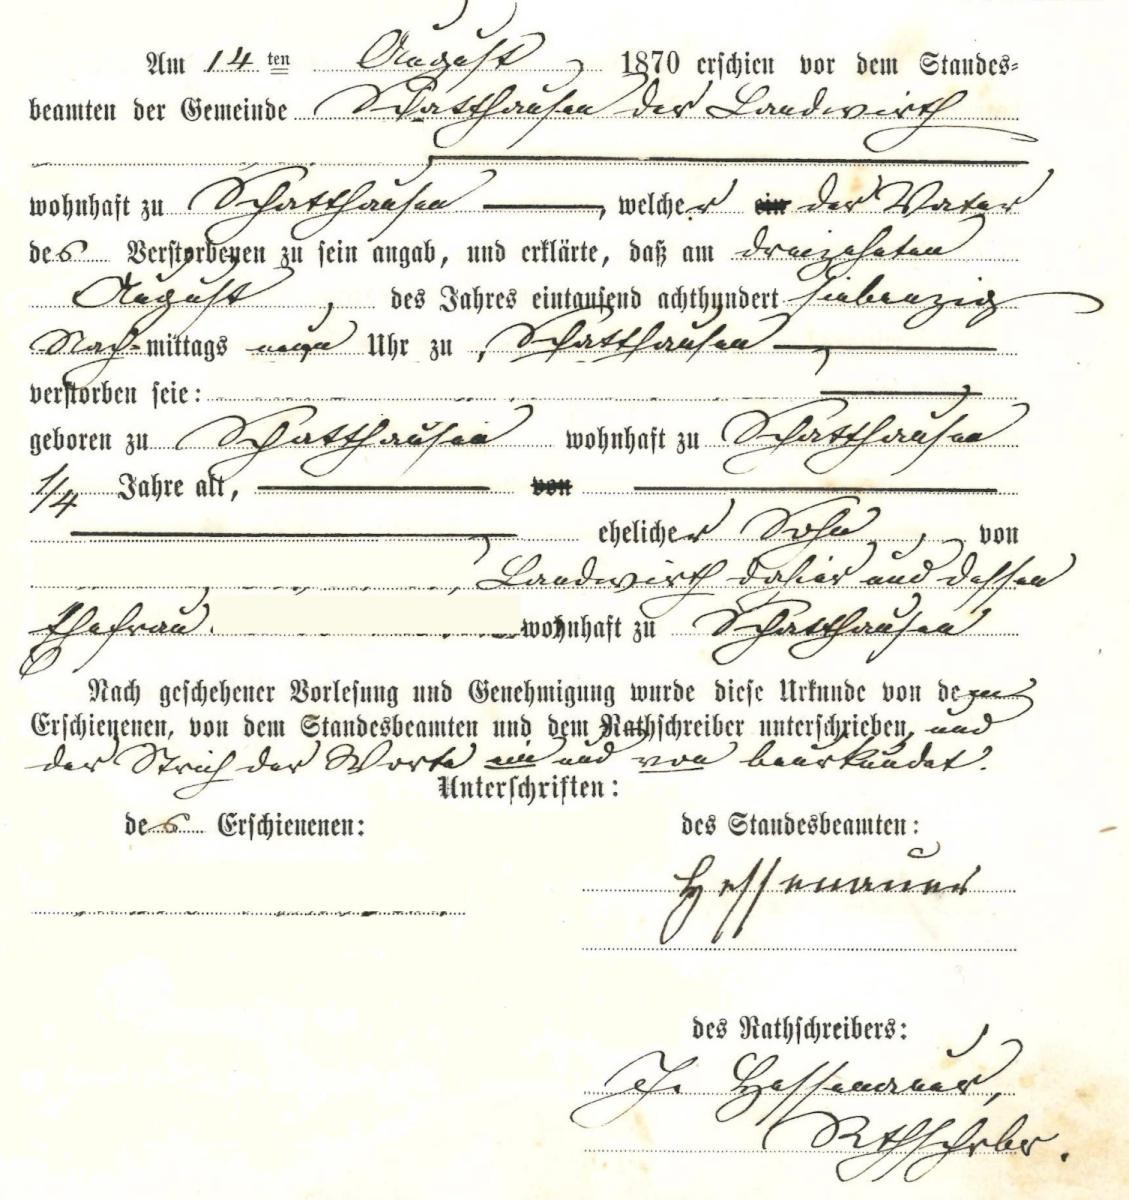 Am 14 ten August 1870 erschien vor dem Standes-
beamten der Gemeinde Schatthausen der Landwirth
wohnhaft zu Schatthausen, welcher ein der Vater
des Verstorbenen zu sein angab, und erklärte, daß am dreizehnten
August, des Jahres eintausend achthundert siebenzig
Nach-mittags neun Uhr zu Schatthausen
verstorben seie:
geboren zu Schatthausen wohnhaft zu Schatthausen
1/4 Jahre alt, von
ehelicher Sohn, von
Landwirth dahier und dessen
Ehefrau. wohnhaft zu Schatthausen
Nach geschehener Vorlesung und Genehmigung wurde diese Urkunde von dem
Erschienenen, von dem Standesbeamten und dem Rathschreiber unterschrieben, und
der Strich der Worte ein und von beurkundet.
Unterschriften:
des Erschienenen: des Standesbeamten:
Hessenauer
des Rathschreibers:
Hessenauer,
Rthschrbr.